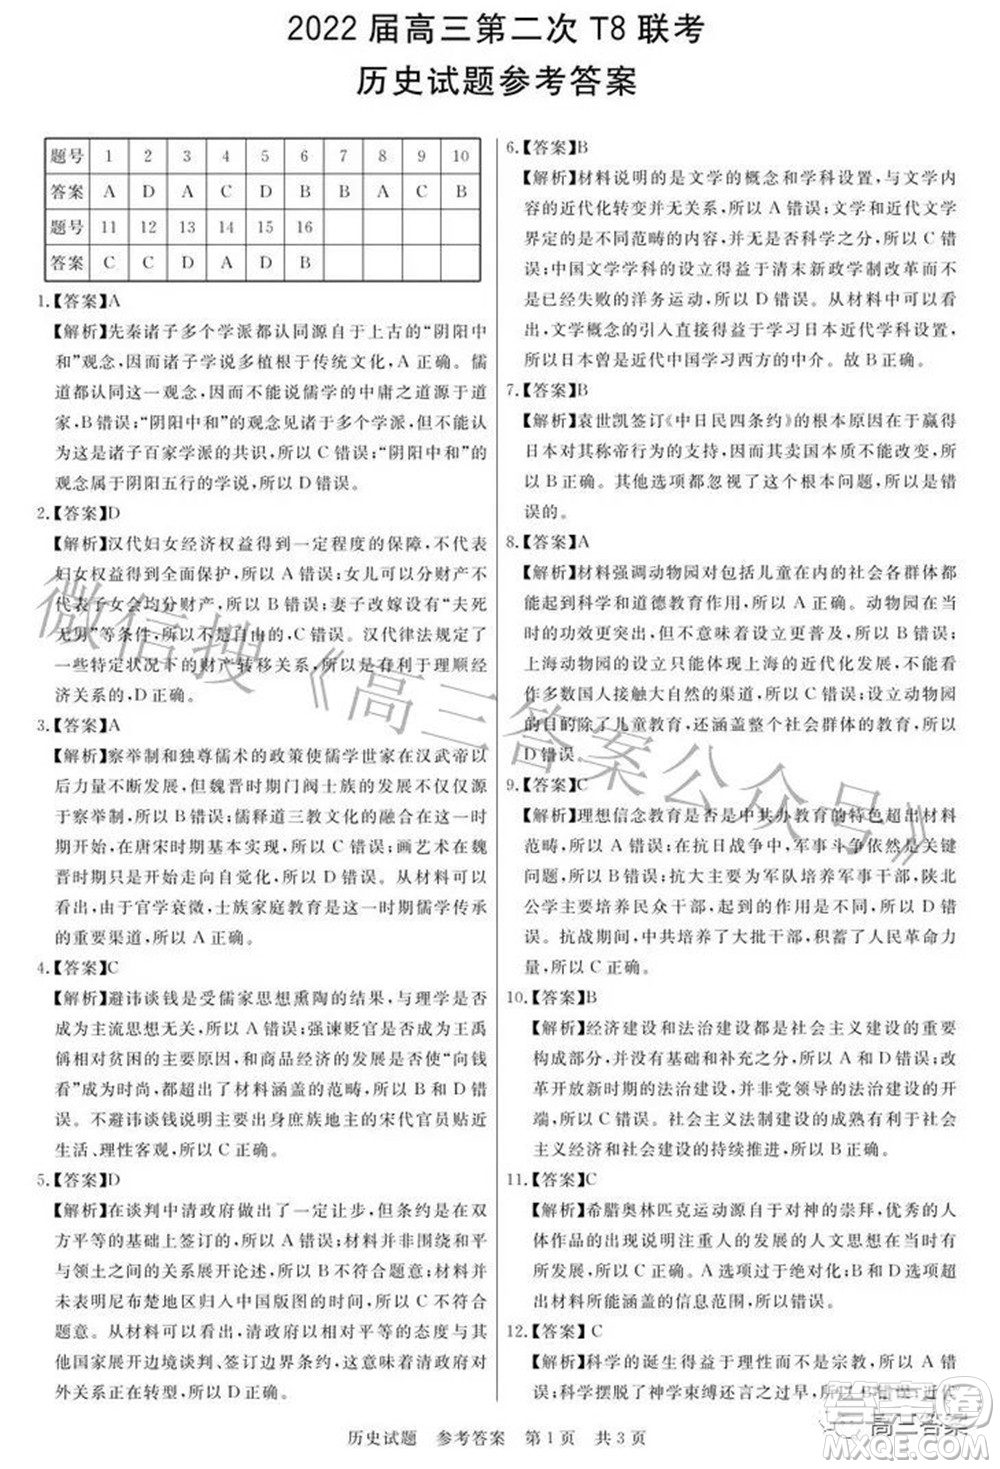 2022 届高三第二次 T8 联考
历史试题参考答案
题号 1 2 3 4 5 6 7 8 9 10
答案 A D A C D B B A C B
题号 11 12 13 14 15 16
答案 C C D A D B
1.【答案】A
【解析】先秦诸子多个学派都认同源自于上古的“阴阳中
和”观念，因而诸子学说多植根于传统文化，A 正确。儒
道都认同这一观念，因而不能说儒学的中庸之道源于道
家，B 错误；“阴阳中和”的观念见诸于多个学派，但不能认
为这是诸子百家学派的共识，所以 C 错误。“阴阳中和”的
观念属于阴阳五行的学说，所以 D 错误。
2.【答案】D
【解析】汉代妇女经济权益得到一定程度的保障，不代表
妇女权益得到全面保护，所以 A 错误；女儿可以分财产不
代表子女会均分财产，所以 B 错误；妻子改嫁设有“夫死
无男”等条件，所以不是自由的，C 错误。汉代律法规定了
一些特定状况下的财产转移关系，所以是有利于理顺经
济关系的，D 正确。
3.【答案】A
【解析】察举制和独尊儒术的政策使儒学世家在汉武帝以
后力量不断发展，但魏晋时期门阀士族的力量不仅仅源
于察举制，所以 B 错误；儒释道三教文化的融合在这一
时期开始，在唐宋时期基本实现，所以 C 错误；画艺术在魏
晋时期已走向自觉化，所以 D 错误。从材料中可以
看出，由于官学衰微，士族家庭教育是这一时期儒学传承
的重要渠道，所以 A 正确。
4.【答案】C
【解析】避讳谈钱是受儒家思想熏陶的结果，与理学是否
成为主流思想无关，所以 A 错误；强谏贬官是否成为王禹
偁相对贫困的主要原因，和商品经济的发展是否使“向钱
看”成为时尚，超出了材料涵盖的范畴，所以 B 和 D 错
误。不避讳谈钱说明主要出身庶族地主的宋代官员贴近
生活、理性客观，所以 C 正确。
5.【答案】D
【解析】在谈判中清政府做出了一定让步，但条约是在双
方平等的基础上签订的，所以 A 错误；材料并非围绕和平
与领土之间的关系展开论述，所以 B 不符合题意；材料并
未表明尼布楚地区归入中国版图的时间，所以 C 不符合
题意。从材料可以看出，清政府以相对平等的态度与其
他国家开展边境谈判、签订边界条约，表明清政府的
对外关系正在转型，所以 D 正确。
6.【答案】B
【解析】材料说明的是文学的概念和学科设置，与文学
内容的近代化转变并无关系，所以 A 错误；文学和近代文学
界定的是不同范畴的内容，并无是否科学之分，所以 C 错
误；中国文学学科的设立得益于清末新政学制改革而不
是已经失败的洋务运动，所以 D 错误。从材料中可以看
出，文学概念的引入直接得益于学习日本近代学科设置，
所以日本曾是近代中国学习西方的中介。故 B 正确。
7.【答案】B
【解析】袁世凯签订《中日民四条约》的根本原因在于赢得
日本对其称帝行为的支持，因其卖国本质不能改变，所
以 B 正确。其他选项都忽视了这个根本问题，所以是错
误的。
8.【答案】A
【解析】材料强调动物园对包括儿童在内的社会各群体都
能起到科学和道德教育作用，所以 A 正确。动物园在
当时的功效更突出，但不能说明其设立更普及，所以 B 错误；
上海动物园的设立只能体现上海的近代化发展，不能看
作多数国人接触大自然的渠道，所以 C 错误；设立动物园
的目的除了儿童教育，还涵盖整个社会群体的教育，所以
D 错误。
9.【答案】C
【解析】理想信念教育是否是中共办教育的特色超出材料
范畴，所以 A 错误；在抗日战争中，军事斗争依然是关键
问题，所以 B 错误；抗大主要是为军队培养军事干部，陕北
公学主要培养民众干部，起到的作用并不相同，所以 D 错
误。抗战期间，中共培养了大批干部，积蓄了人民革命力
量，所以 C 正确。
10.【答案】B
【解析】经济建设和法治建设都是社会主义建设的重要
构成部分，并没有基础和补充之分，所以 A 和 D 错误；改
革开放新时期的法治建设，并非党领导的法治建设的开
端，所以 C 错误。社会主义法制建设的成熟有利于社会
主义经济和社会建设的持续推进，所以 B 正确。
11.【答案】C
【解析】希腊奥林匹克运动源于对神的崇拜，优秀的人
体作品则表明注重人的发展的人文思想在希腊有
所发展，所以 C 正确；A 选项过于绝对化；B 和 D 选项都
超出材料所能涵盖的信息范围，所以错误。
12.【答案】C
【解析】科学的诞生得益于理性而不是宗教，所以 A 错
误；科学摆脱了神学束缚还言之过早，所以 B 错误；近代
历史试题 参考答案 第 1 页 共 3 页
微信搜《高三答案公众号》
高三答案
答案圈
MXQE.COM